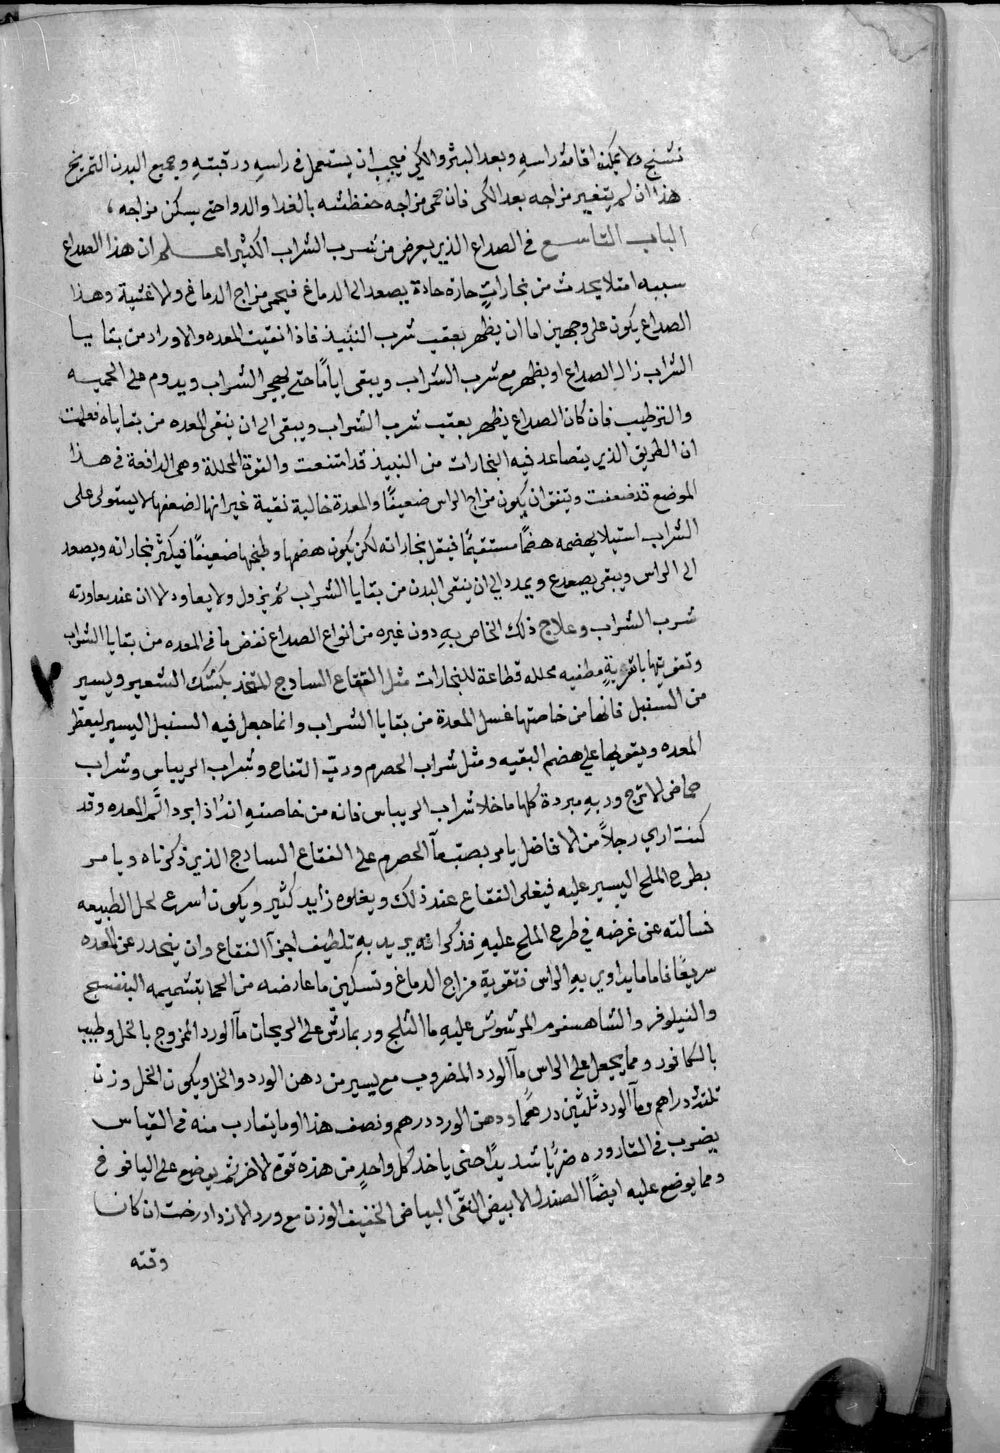 تشنج ولا يمكنه اقامة راسه وبعد البثر والكي فيجب ان يستعمل في راسهِ ورقبتهِ وجميع البدن التمريخ
هذا ان لم يتغير مزاجه بعد الكى فان حمى مزاجه حفظته بالغدا والدوا حتى يسكن مزاجه
الباب التاسع في الصداع الذي يعرض من شرب الشراب الكثير اعلم ان هذا الصداع
سببه امتلا يحدث من بخاراتٍ حاره حادة يصعد الى الدماغ فيحمى مزاج الدماغ والاغشية وهذا
الصداع يكون على وجهين اما ان يظهر بعقب شرب النبيذ فاذا نقيت المعده والاوراد من بقايا
الشراب زال الصداع او يظهر مع شرب الشراب ويبقى اياماً حتى يهجر الشراب ويدوم على الحميه
والترطيب فان كان الصداع يظهر بعقب شرب الشراب ويبقى الى ان ينقى المعده من بقاياه فعلمت
ان الطريق الذي يتصاعد فيه البخارات من النبيذ قد امتنعت والقوة المحللة وهى الدافعة في هذا
الموضع قد ضعفت ويتفق ان يكون مزاج الراس ضعيفاً والمعدة خالية نقية غير انها لضعفها لا يستولى على
الشراب استيلا يهضمه هضماً مستقيماً فيقل بخاراته لكن يكون هضمها وطبخها ضعيفاً فيكثر بخاراته ويصعد
الى الراس ويبقى يصعد ع ويمدد الى ان ينقى البدن من بقايا الشراب ثم يزول ولا يعاود الا ان عند معاودته
شرب الشراب وعلاج ذلك الخاص بهِ دون غيره من انواع الصداع نفض ما في المعده من بقايا الشراب
وتقويتها باقويةٍ مطفيه محلله قطاعة للبخارات مثل الفقاع السادج المتخذ بكشك الشعير ويسير
من السنبل فانها من خاصتها غسل المعدة من بقايا الشراب وانما جعل فيه السنبل اليسير ليعطر
المعده ويقويها على هضم البقيه ومثل شراب الحصرم وربّ التفاح وشراب الريباس وشراب
حماض الاترج وربهِ مبردة كلها ما خلا شراب الريباس فانه من خاصتهِ انهُ اذا ابرد اثّر المعده وقد
كنت ارى رجلاً من الافاضل يامر بصبّ مآ الحصرم على الفقاع السادج الذي ذكرناه ويامر
بطرح الملح اليسير عليه فيغلى الفقاع عند ذلك ويغلوه زايد كثير ويكون اسرع لحل الطبيعه
فسالته عن غرضه في طرح الملح عليهِ فذكر انه يريد بهِ تلطيف اجزآ الفقاع وان ينحدر عن المعده
سريعًا فاما ما يداوى بهِ الراس فتقوية مزاج الدماغ وتسكين ما عارضه من الحما بتشميمه البنفسج
والنيلوفر والشاهسفرم المرشوش عليهِ مآ الثلج وربما رشّ على الريحان مآ الورد الممزوج بالخل وطيب
بالكافور ومما يجعل على الراس مآ الورد المضروب مع يسير من دهن الورد والخل ويكون الخل وزن
ثلثة دراهم ومآ الورد ثلثين درهماً ودهن الورد درهم ونصف هذا او ما يتقارب منه في القياس
يضرب في القاروره ضربًا شديدًا حتى ياخذ كل واحدٍ من هذه قوة الاخر ثم يوضع على اليافوخ
ومما يوضع عليه ايضاً الصندل الابيض النقى البياض الخفيف الوزن مع ورد الازادرخت ان كان
وقته